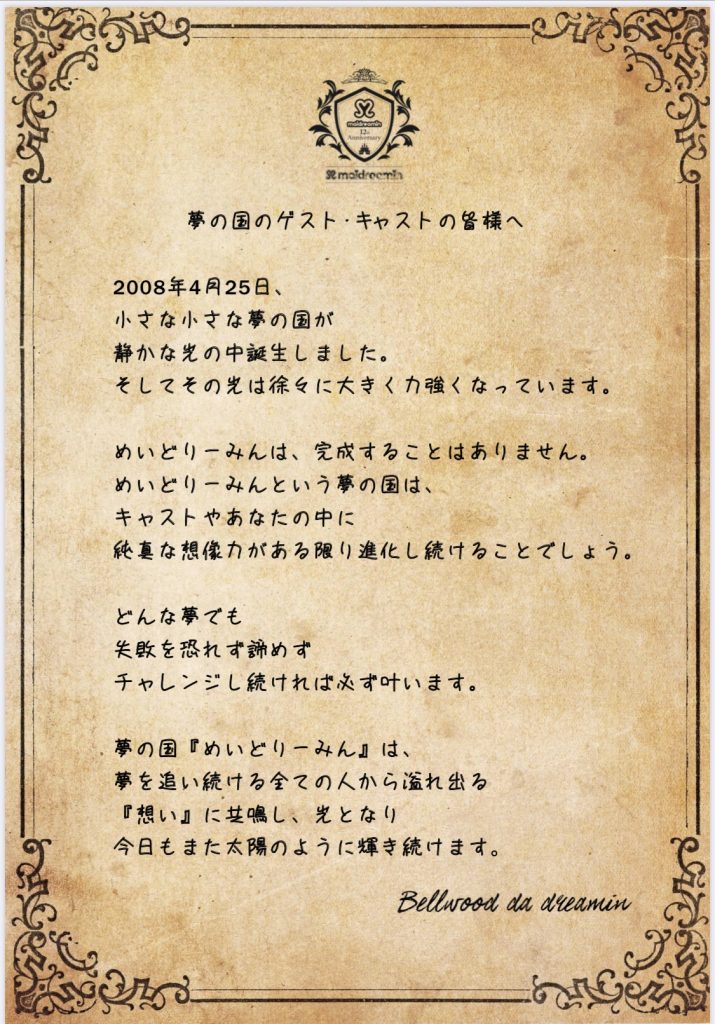 maidreamin
12th
Anniversary
maidreamin
夢の国のゲスト・キャストの皆様へ
2008年4月25日、
小さな小さな夢の国が
静かな光の中誕生しました。
そしてその光は徐々に大きく力強くなっています。
めいどりーみんは、完成することはありません。
めいどりーみんという夢の国は、
キャストやあなたの中に
純真な想像力がある限り進化し続けることでしょう。
どんな夢でも
失敗を恐れず諦めず
チャレンジし続ければ必ず叶います。
夢の国『めいどりーみん』は、
夢を追い続ける全ての人から溢れ出る
『想い』に共鳴し、光となり
今日もまた太陽のように輝き続けます。
Bellwood da dreamin